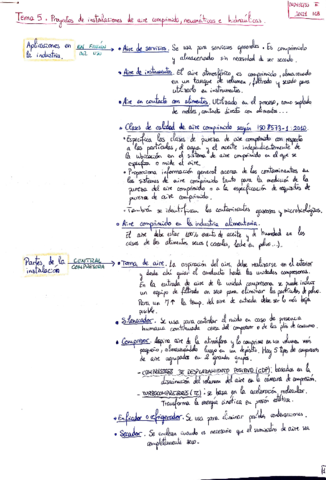 Tema 5. Proyectos de instalaciones de aire comprimido, neumáticas e hidráulicas.
Aplicaciones en la industria. EN FUNCIÓN DEL USO
• Aire de servicios. Se usa para servicios generales. Es comprimido
y almacenado sin necesidad de ser secado.
• Aire de instrumentos. El aire atmosférico es comprimido, almacenado
en un tanque de volumen, filtrado y secado para
utilizarlo en instrumentos.
• Aire en contacto con alimentos. Utilizado en el proceso, como soplado
de moldes, contacto directo con alimentos...
• Clases de calidad de aire comprimido según ISO 8573-1:2010.
* Especifica las clases de pureza de aire comprimido con respecto
a las partículas, el agua y el aceite independientemente de
la ubicación en el sistema de aire comprimido en el que se
especifica o mide el aire.
* Proporciona información general acerca de los contaminantes en
los sistemas de aire comprimido tanto para la medición de la
pureza del aire comprimido o a la especificación de requisitos de
pureza de aire comprimido.
- También se identifican los contaminantes gaseosos y microbiológicos.
• Aire comprimido en la industria alimentaria.
El aire debe estar 100% exento de aceite y de humedad en los
casos de los alimentos secos (cereales, leche en polvo...).
Partes de la instalación CENTRAL COMPRESORA
• Toma de aire. La aspiración del aire debe realizarse en el exterior
y desde ahí guiar el conducto hasta las unidades compresoras.
En la entrada de aire de la unidad compresora se puede incluir
un equipo de filtrado en seco para eliminar las partículas de polvo.
Para un η↑ la temp. del aire de entrada debe ser lo más baja
posible.
• Silenciador. Se usa para controlar el ruido en caso de presencia
humana continuada cerca del compresor o de los pts de consumo.
• Compresor. Aspira aire de la atmósfera y lo comprime en un volumen más
pequeño, almacenándolo luego en un depósito. Hay 5 tipos de compresores
de aire agrupados en 2 grandes grupos.
- COMPRESORES DE DESPLAZAMIENTO POSITIVO (CDP): basados en la
disminución del volumen del aire en la cámara de compresión.
- TURBOCOMPRESORES (TC): se basa en la aceleración molecular.
Transforma la energía cinética en presión estática.
• Enfriador o refrigerador. Se usa para eliminar posibles condensaciones.
• Secador. Se utilizan cuando es necesario que el suministro de aire sea
completamente seco.